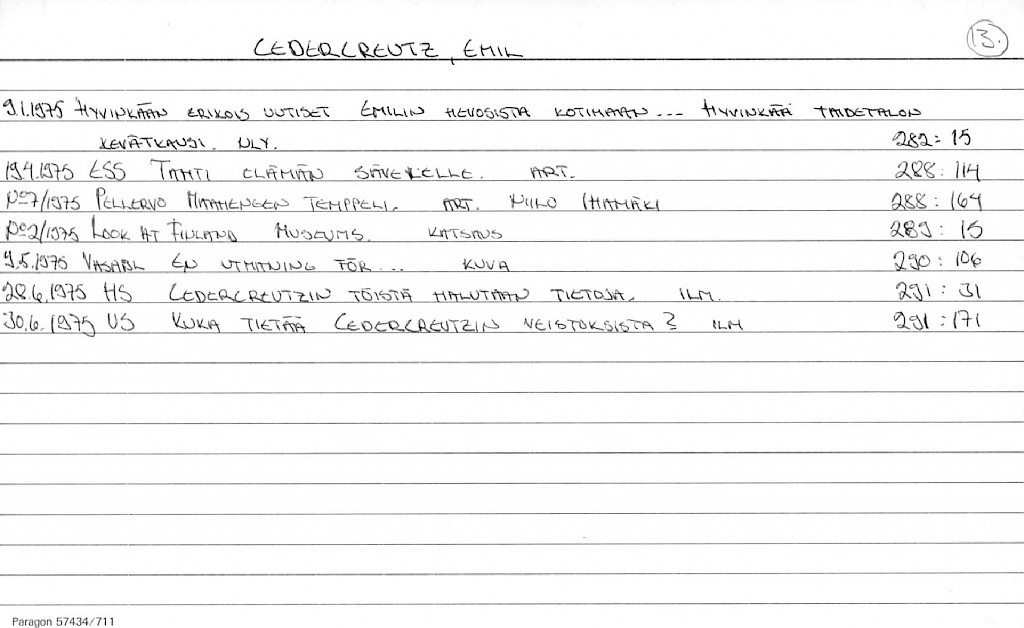 CEDERCREUTZ, EMIL
13.
9.1.1975 HYVINKÄÄN ERIKOIS UUTISET EMILIN HEVOSISTA KOTIMAAN... HYVINKÄÄ TAIDETALON
KEVÄTKAUSI. NLY. 282:15
19.4.1975 ESS TAHTI ELÄMÄN SÄVELELLE. ART. 288:114
No 7/1975 PELLERVO MAAHENGEN TEMPPELI. ART. NIILO IHAMÄKI 288:164
No 2/1975 LOOK AT FINLAND MUSEUMS. KATSAUS 289:15
9.5.1975 VASABL EN UTMITNING FÖR... KUVA 290:106
28.6.1975 HS CEDERCREUTZIN TÖISTÄ HALUTAAN TIETOJA. ILM. 291:31
30.6.1975 US KUKA TIETÄÄ CEDERCREUTZIN VEISTOKSISTA? ILM 291:171
Paragon 57434/711